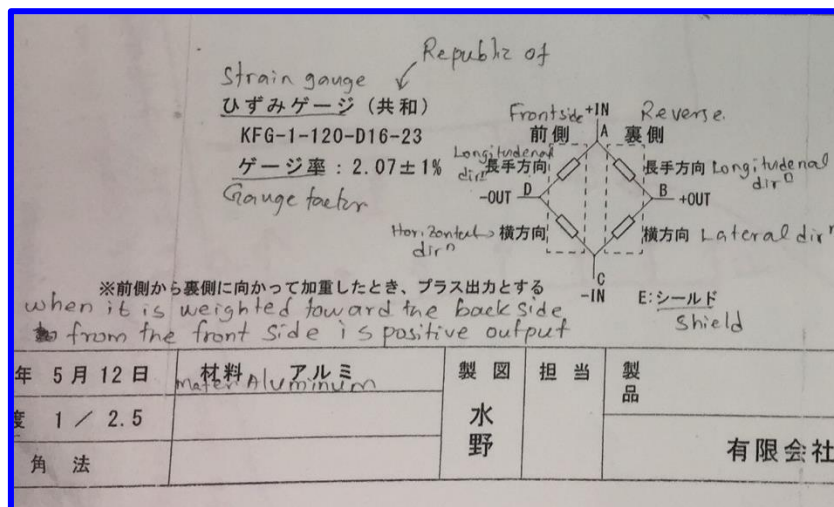 Republic of
Strain gauge
ひずみゲージ（共和）
KFG-1-120-D16-23
ゲージ率：2.07±1%
Gauge factor
Frontside +IN Reverse.
前側 A 裏側
Longitudenal dirⁿ 長手方向 長手方向 Longitudenal dirⁿ
-OUT D B +OUT
Horizontal dirⁿ 横方向 横方向 Lateral dirⁿ
C
-IN E:シールド
Shield
※前側から裏側に向かって加重したとき、プラス出力とする
when it is weighted toward the back side
from the front side is positive output
年 5月12日 材料 アルミ 製図 担当 製品
Aluminum
度 1／2.5 水野
角法 有限会社